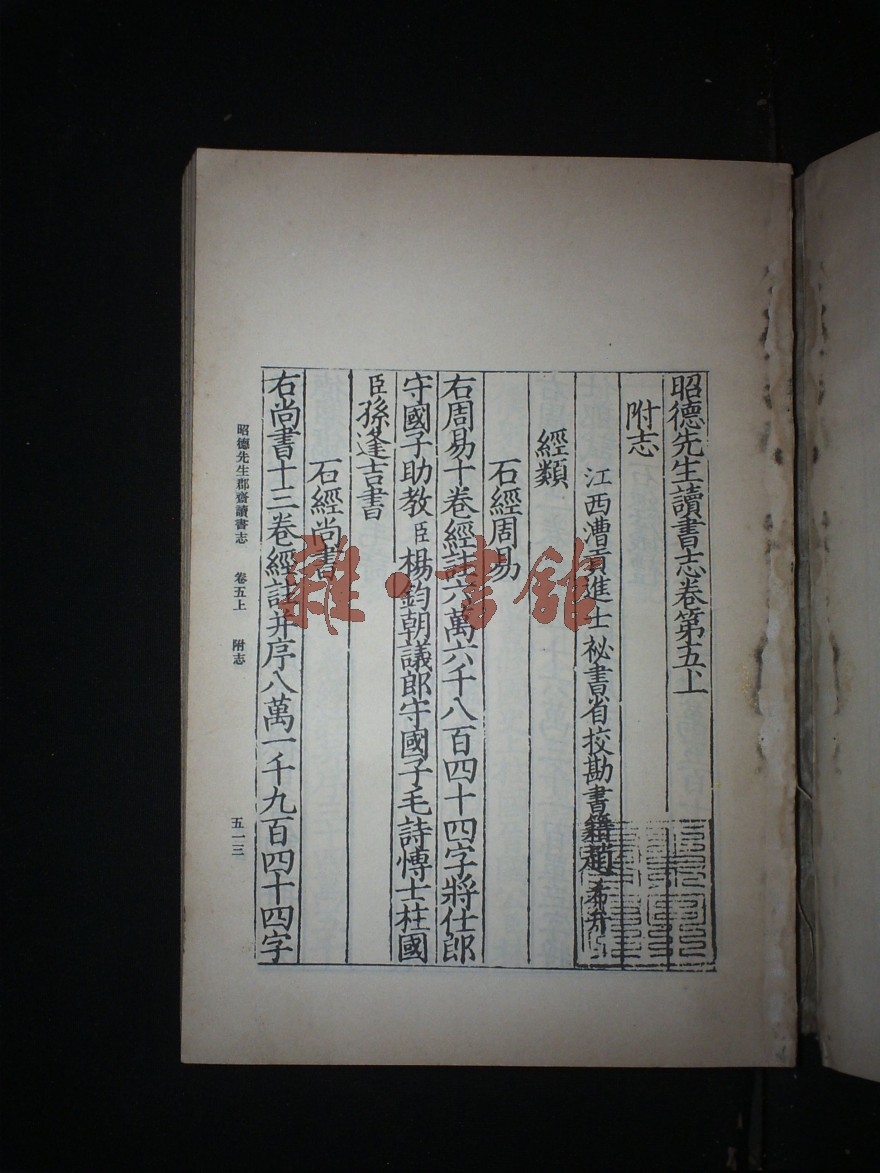 昭德先生讀書志卷第五上
附志
江西漕貢進士祕書省校勘書籍趙希弁
經類
石經周易
右周易十卷經註六萬六千八百四十四字將仕郎
守國子助教臣楊鈞朝議郎守國子毛詩博士柱國
臣孫逢吉書
石經尚書
右尚書十三卷經註并序八萬一千九百四十四字
昭德先生郡齋讀書志 卷五上 附志
五一三
雜·書館